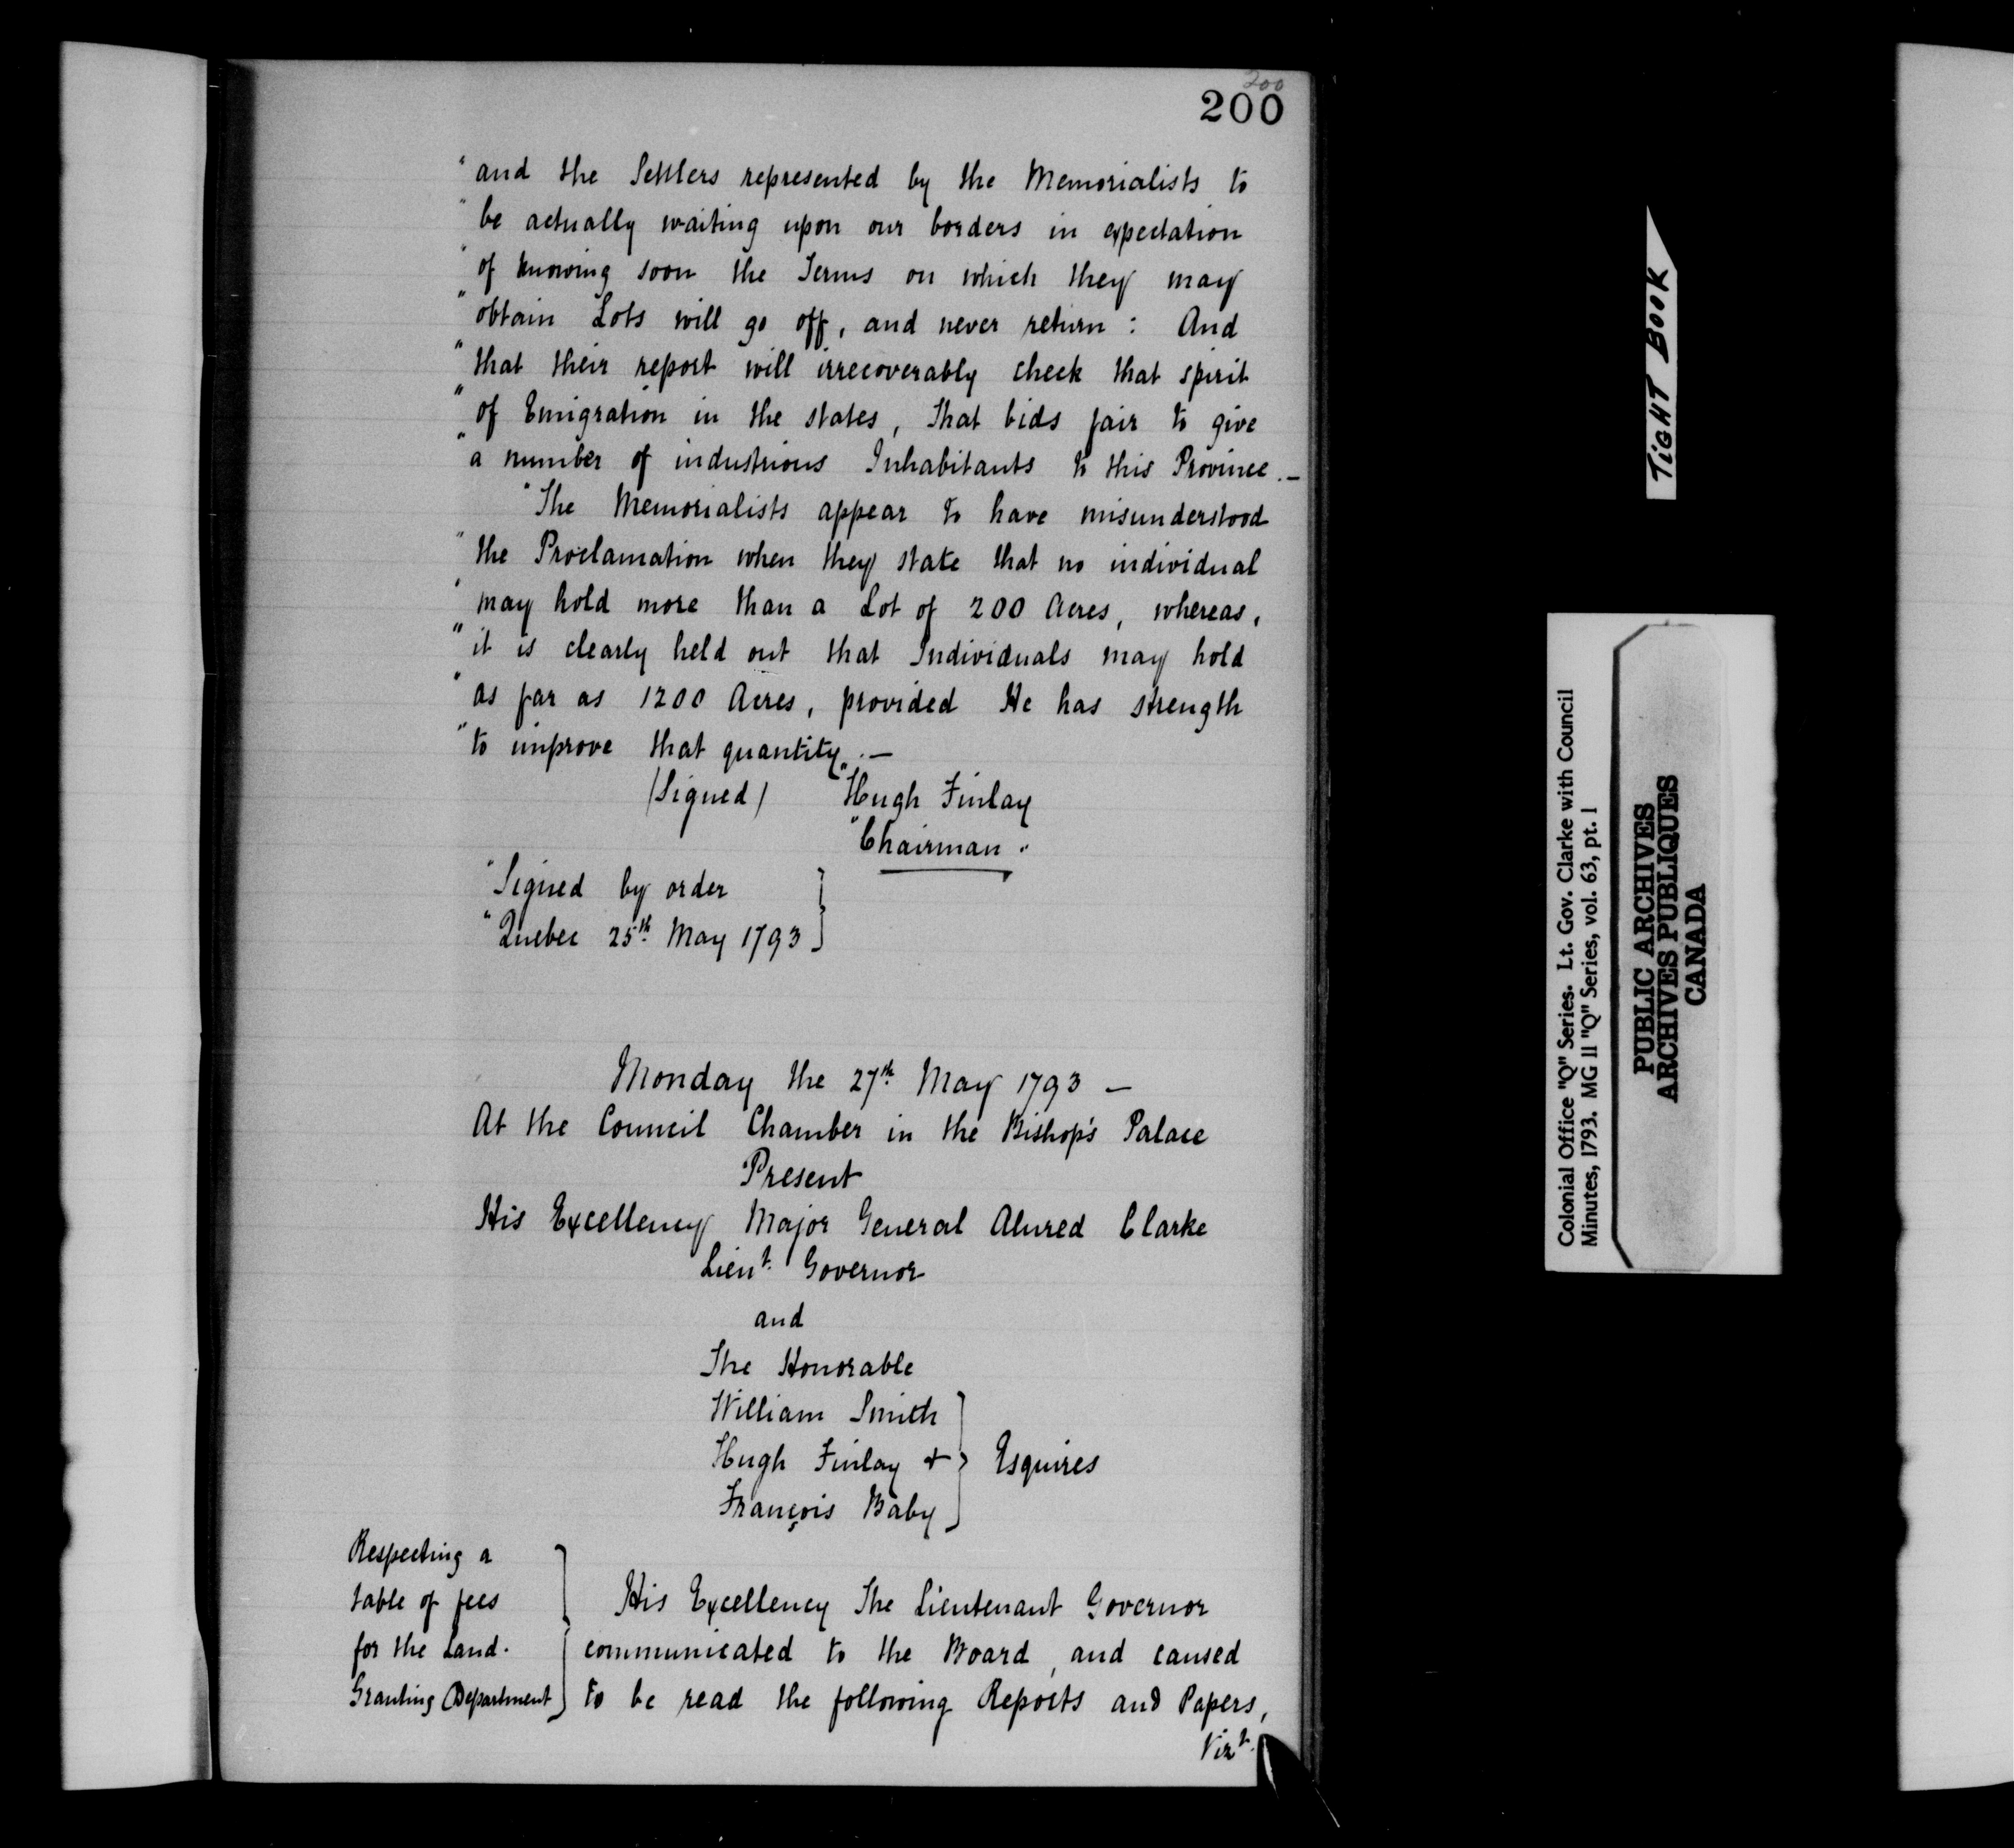 200
200
" and the Settlers represented by the Memorialists to
" be actually waiting upon our borders in expectation
" of knowing soon the Terms on which they may
" obtain Lots will go off, and never return : And
" that their report will irrecoverably check that spirit
" of Emigration in the states, that bids fair to give
" a number of industrious Inhabitants to this Province.—
" The Memorialists appear to have misunderstood
" the Proclamation when they state that no individual
" may hold more than a Lot of 200 Acres, whereas,
" it is clearly held out that Individuals may hold
" as far as 1200 Acres, provided He has strength
" to improve that quantity.—
(Signed) "Hugh Finlay
"Chairman."
"Signed by order
"Quebec 25th. May 1793
Monday the 27th. May 1793 —
At the Council Chamber in the Bishop's Palace
Present
His Excellency Major General Alured Clarke
Lieut. Governor
and
The Honorable
William Smith
Hugh Finlay + Esquires
François Baby
Respecting a
table of fees
for the Land.
Granting Department
His Excellency The Lieutenant Governor
communicated to the Board, and caused
to be read the following Reports and Papers,
Vizt.
TIGHT BOOK
Colonial Office "Q" Series. Lt. Gov. Clarke with Council
Minutes, 1793. MG 11 "Q" Series, vol. 63, pt. 1
PUBLIC ARCHIVES
ARCHIVES PUBLIQUES
CANADA